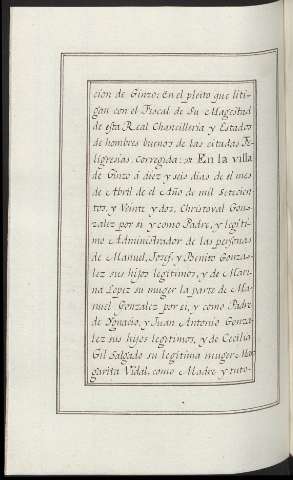 cion de Ginzo: En el pleito que liti-
gan con el Fiscal de Su Magestad
de esta Real Chancilleria y Estados
de hombres buenos de las citadas Fe-
ligresias. Corregida: En la villa
de Ginzo á diez y seis dias de el mes
de Abril de el Año de mil Setecien-
tos, y Veinte y dos, Christoval Gon-
zalez por si y como Padre, y legiti-
mo Administrador de las personas
de Manuel, Josef, y Benito Gonza-
lez sus hijos legitimos, y de Mari-
na Lopez su muger la parte de Ma-
nuel Gonzalez por si, y como Padre
de Ygnacio, y Juan Antonio Gonza-
lez sus hijos legitimos, y de Cecilia
Gil Salgado su legitima muger Mar-
garita Vidal, como Madre y tuto-